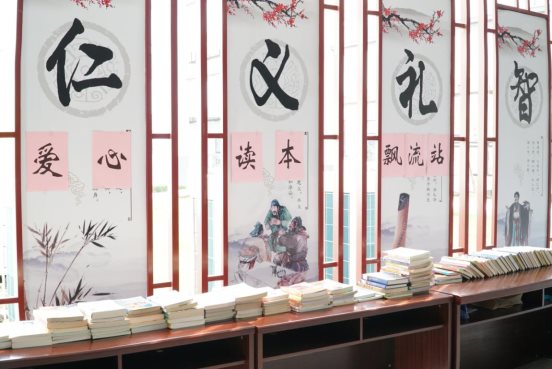 仁
义
礼
智
爱心
读本
飘流站